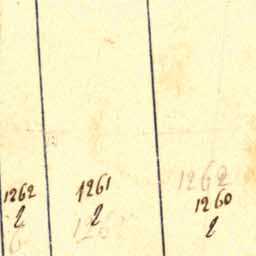 1262
1262 1261 1260
2 2 2